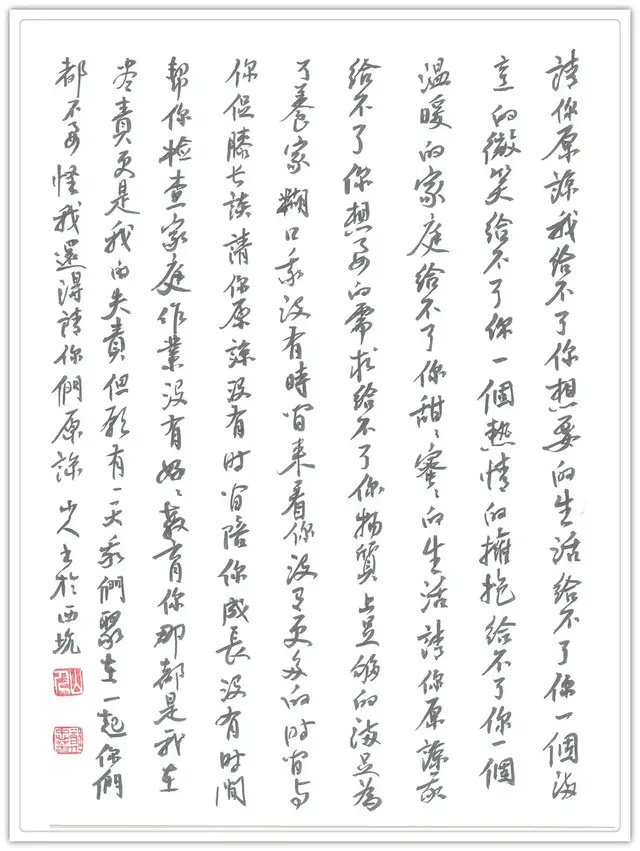 請你原諒我給不了你想要的生活給不了你一個滿
意的微笑給不了你一個熱情的擁抱給不了你一個
溫暖的家庭給不了你甜〻蜜〻的生活請你原諒我
給不了你想要的需求給不了你物質上足够的滿足為
了養家糊口我沒有時间来看你没有更多的时间与
你促膝长談請你原諒没有时间陪你成長没有时間
幫你检查家庭作業没有好〻教育你那都是我在
尽責更是我的失責但願有一天我們聚在一起你們
都不要怪我還得請你們原諒 山人书於西坑